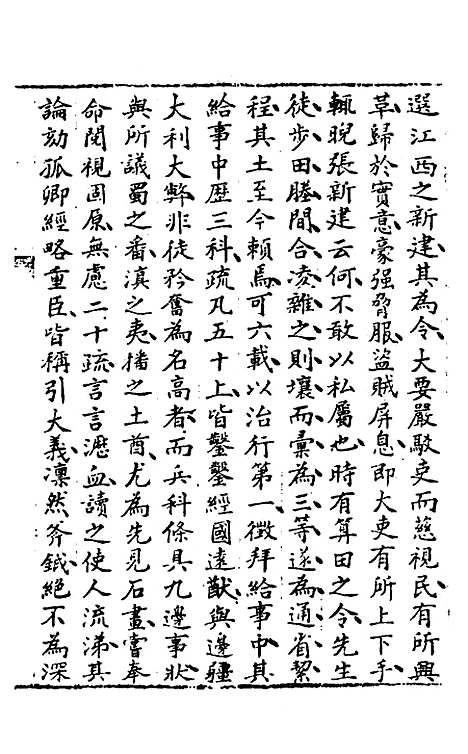 選江西之新建其為令大要嚴馭吏而慈視民有所興
革歸於實意豪强脅服盜賊屏息即大吏有所上下手
輒睨張新建云何不敢以私屬也時有算田之令先生
徒步田塍間合凌雜之則壤而彙為三等遂為通省絜
程其土至今賴焉可六載以治行第一徵拜給事中其
給事中歷三科疏凡五十上皆鑿鑿經國遠猷與邊疆
大利大弊非徒矜奮為名高者而兵科條具九邊事狀
與所議蜀之番滇之夷播之土酋尤為先見石畫嘗奉
命閱視固原無慮二十疏言言瀝血讀之使人流涕其
論劾孤卿經略重臣皆稱引大義凜然斧鉞絕不為深